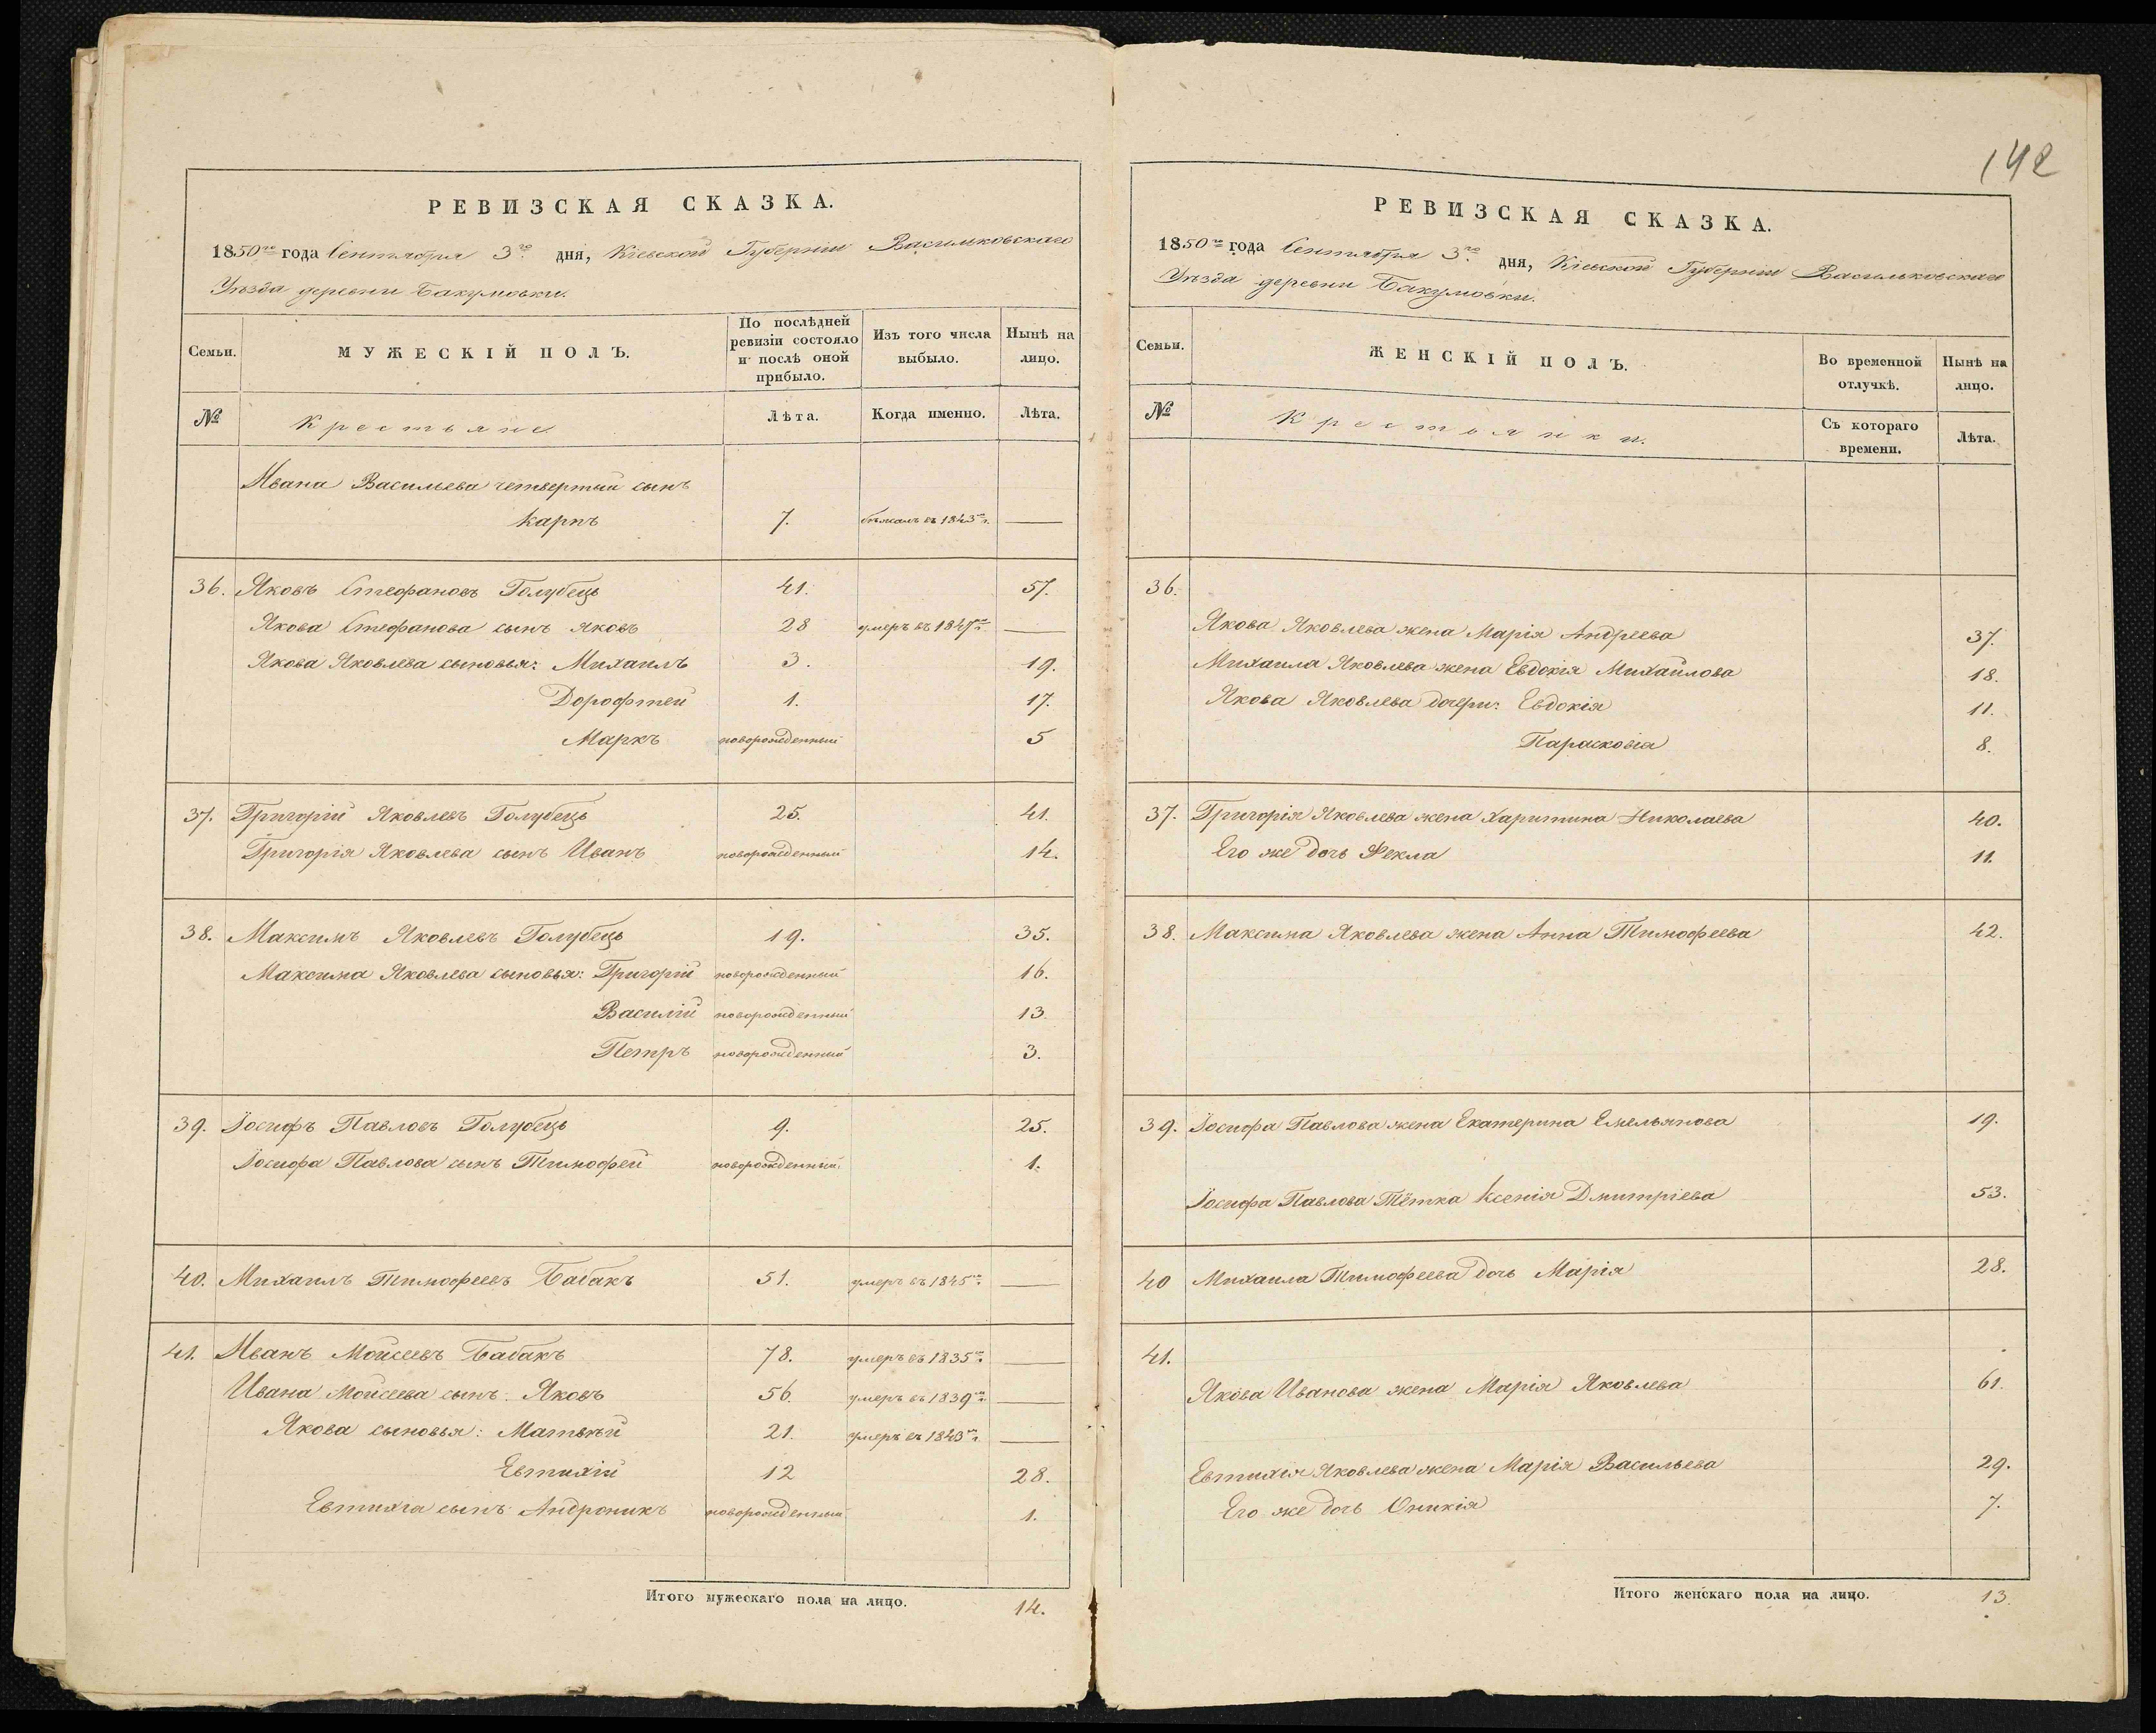 142
РЕВИЗСКАЯ СКАЗКА.
1850го года Сентября 3го дня, Кіевской Губерніи Васильковскаго
Уѣзда деревни Бакумовки.
Семьи.
МУЖЕСКІЙ ПОЛЪ.
По послѣдней ревизіи состояло и послѣ оной прибыло.
Изъ того числа выбыло.
Нынѣ на лицо.
№
Крестьяне
Лѣта.
Когда именно.
Лѣта.
Ивана Васильева четвертый сынъ
Карпъ 7. бѣжалъ въ 1843го г. —
36. Яковъ Стефановъ Голубець 41. 57.
Якова Стефанова сынъ Яковъ 28 умеръ въ 1847го г. —
Якова Яковлева сыновья: Михаилъ 3. 19.
Дорофтей 1. 17.
Маркъ новорожденный 5
37. Григорій Яковлевъ Голубець 25. 41.
Григорія Яковлева сынъ Иванъ новорожденный 14.
38. Максимъ Яковлевъ Голубець 19. 35.
Максима Яковлева сыновья: Григорій новорожденный 16.
Василій новорожденный 13
Петръ новорожденный 3.
39. Іосифъ Павловъ Голубець 9. 25.
Іосифа Павлова сынъ Тимофей новорожденный 1.
40. Михаилъ Тимофеевъ Бабакъ 51. умеръ въ 1845го г. —
41. Иванъ Мойсеевъ Бабакъ 78. умеръ въ 1835го г. —
Ивана Мойсеева сынъ Яковъ 56. умеръ въ 1839го г. —
Якова сыновья: Матвѣй 21. умеръ въ 1843го г. —
Евтихій 12 28.
Евтихія сынъ Андроникъ новорожденный 1.
Итого мужескаго пола на лицо. 14.
РЕВИЗСКАЯ СКАЗКА.
1850го года Сентября 3го дня, Кіевской Губерніи Васильковскаго
Уѣзда деревни Бакумовки.
Семьи.
ЖЕНСКІЙ ПОЛЪ.
Во временной отлучкѣ.
Нынѣ на лицо.
№
Крестьянки.
Съ котораго времени.
Лѣта.
36.
Якова Яковлева жена Марія Андреева 37.
Михаила Яковлева жена Евдокія Михайлова 18.
Якова Яковлева дочери: Евдокія 11.
Парасковія 8.
37. Григорія Яковлева жена Харитина Николаева 40.
Его же дочь Фекла 11.
38. Максима Яковлева жена Анна Тимофеева 42.
39. Іосифа Павлова жена Екатерина Емельянова 19.
Іосифа Павлова Тётка Ксенія Дмитріева 53.
40 Михаила Тимофеева дочь Марія 28.
41.
Якова Иванова жена Марія Яковлева 61.
Евтихія Яковлева жена Марія Васильева 29.
Его же дочь Оникія 7.
Итого женскаго пола на лицо. 13.